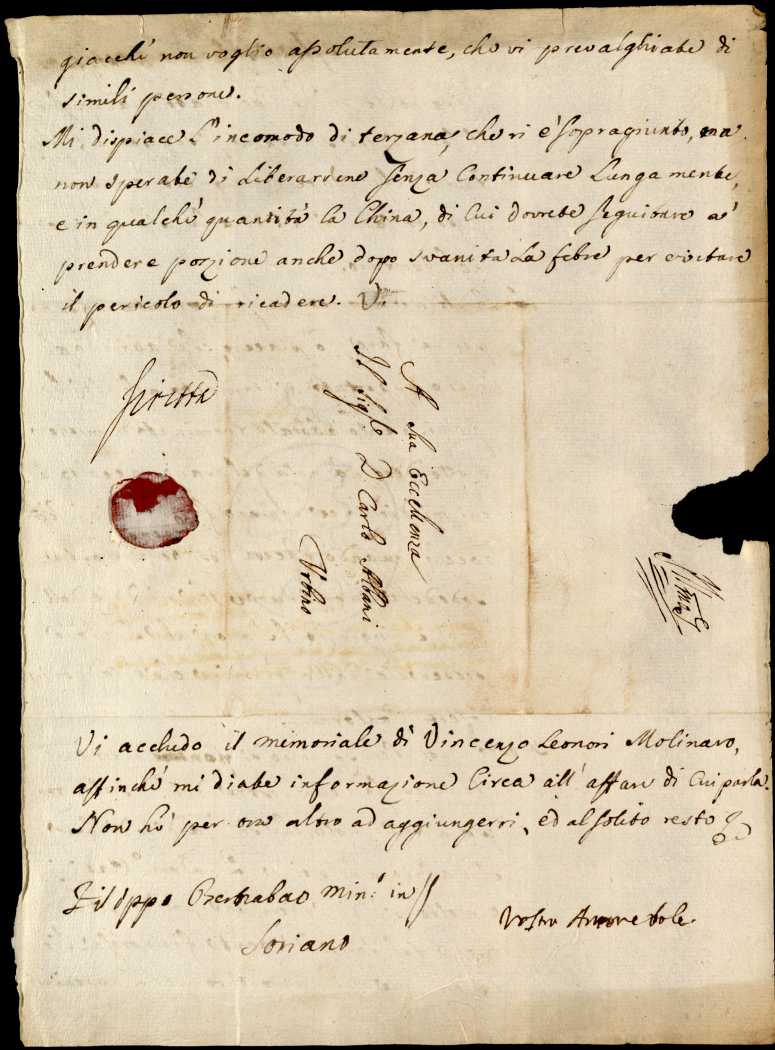 giacché non voglio assolutamente, che vi prevalghiate di
simili persone.
Mi dispiace l'incomodo di terzana, che vi è sopragiunto, ma
non sperate di liberarvene senza continuare lungamente,
e in qualché quantità la China, di cui dovrete seguitare a'
prendere porzione anche dopo svanita la febre per evitare
il pericolo di ricadere. V.
A Sua Eccellenza
Il Sigre D Carlo Albani
Urbino
Vi accludo il memoriale di Vincenzo Leonori Molinaro,
affinché mi diate informazione circa all'affare di cui parla.
Non hò per ora altro ad aggiungervi, ed al solito resto
Filippo min: in
Soriano
Vostro Amorevole